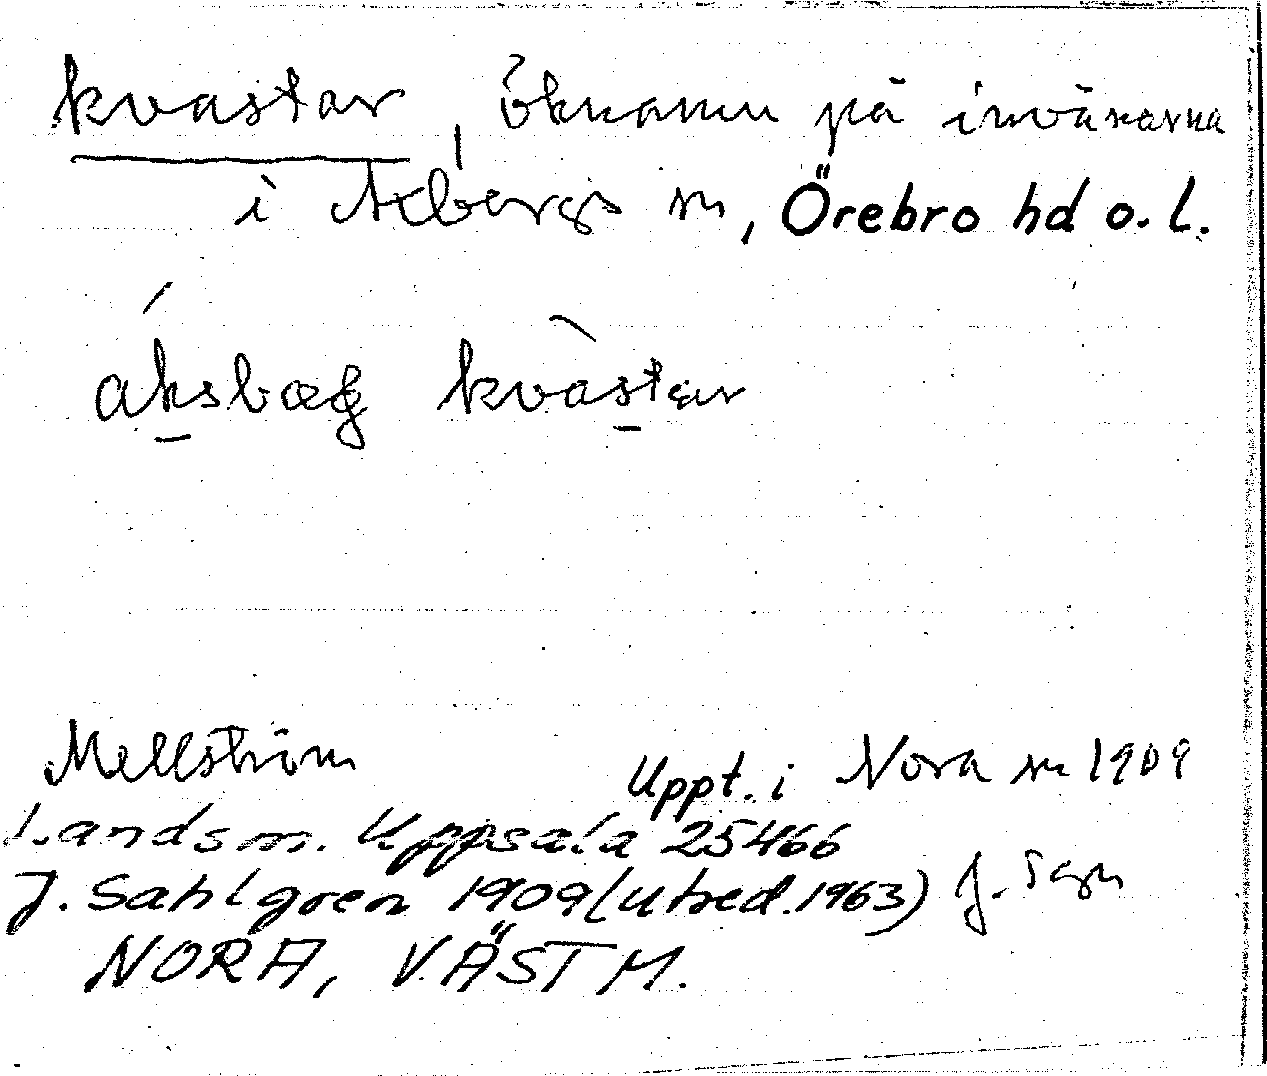 kvastar, öknamn på invånarna
i Axbergs sn, Örebro hd o. l.
áksbæg kvàstar
Mellström
Uppt. i Nora sn 1909
Landsm. Uppsala 25466
J. Sahlgren 1909 (utred. 1963) J.
NORA, VÄSTM.